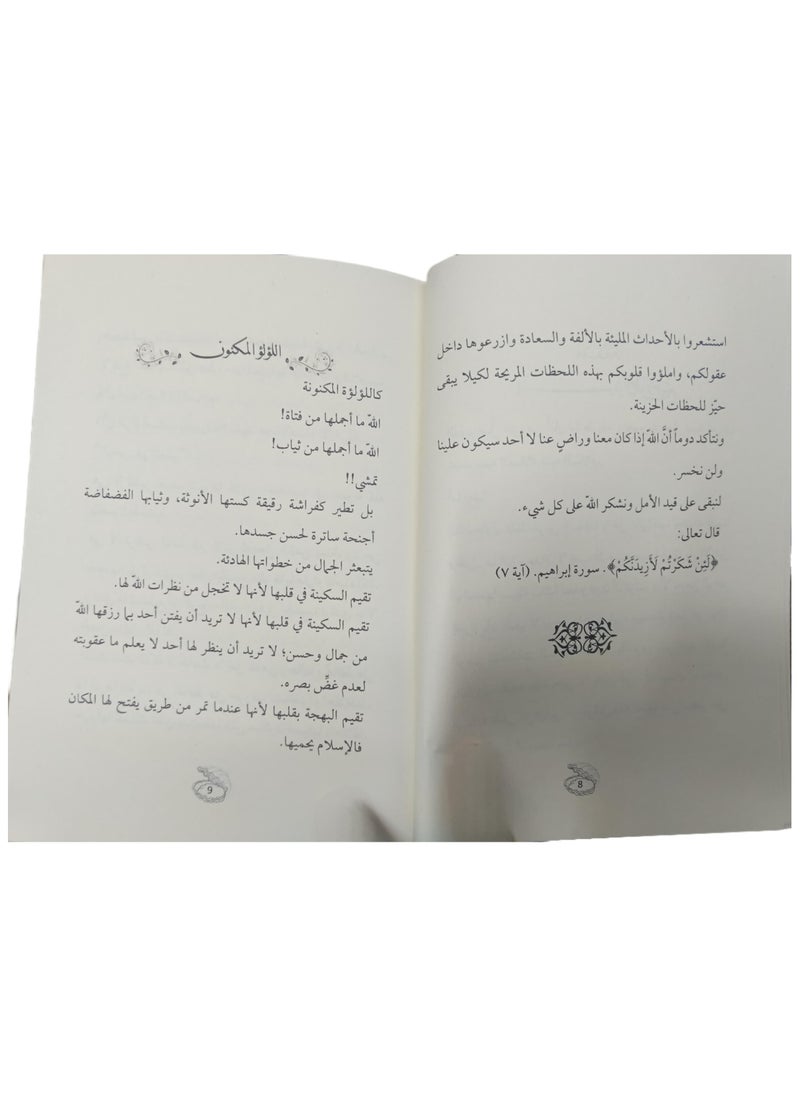 استشعروا بالأحداث المليئة بالألفة والسعادة وازرعوها داخل
عقولكم، واملؤوا قلوبكم بهذه اللحظات المريحة لكيلا يبقى
حيّز للحظات الحزينة.
ونتأكد دوماً أنَّ اللّه إذا كان معنا وراضٍ عنا لا أحد سيكون علينا
ولن نخسر.
لنبقى على قيد الأمل ونشكر اللّه على كل شيء.
قال تعالى:
﴿لَئِنْ شَكَرْتُمْ لَأَزِيدَنَّكُمْ﴾. سورة إبراهيم. (آية ٧)
8
اللؤلؤ المكنون
كاللؤلؤة المكنونة
اللّه ما أجملها من فتاة!
اللّه ما أجملها من ثياب!
تمشي!!
بل تطير كفراشة رقيقة كستها الأنوثة، وثيابها الفضفاضة
أجنحة ساترة لحسن جسدها.
يتبعثر الجمال من خطواتها الهادئة.
تقيم السكينة في قلبها لأنها لا تخجل من نظرات اللّه لها.
تقيم السكينة في قلبها لأنها لا تريد أن يفتن أحد بما رزقها اللّه
من جمال وحسن؛ لا تريد أن ينظر لها أحد لا يعلم ما عقوبته
لعدم غضِّ بصره.
تقيم البهجة بقلبها لأنها عندما تمر من طريق يفتح لها المكان
فالإسلام يحميها.
9